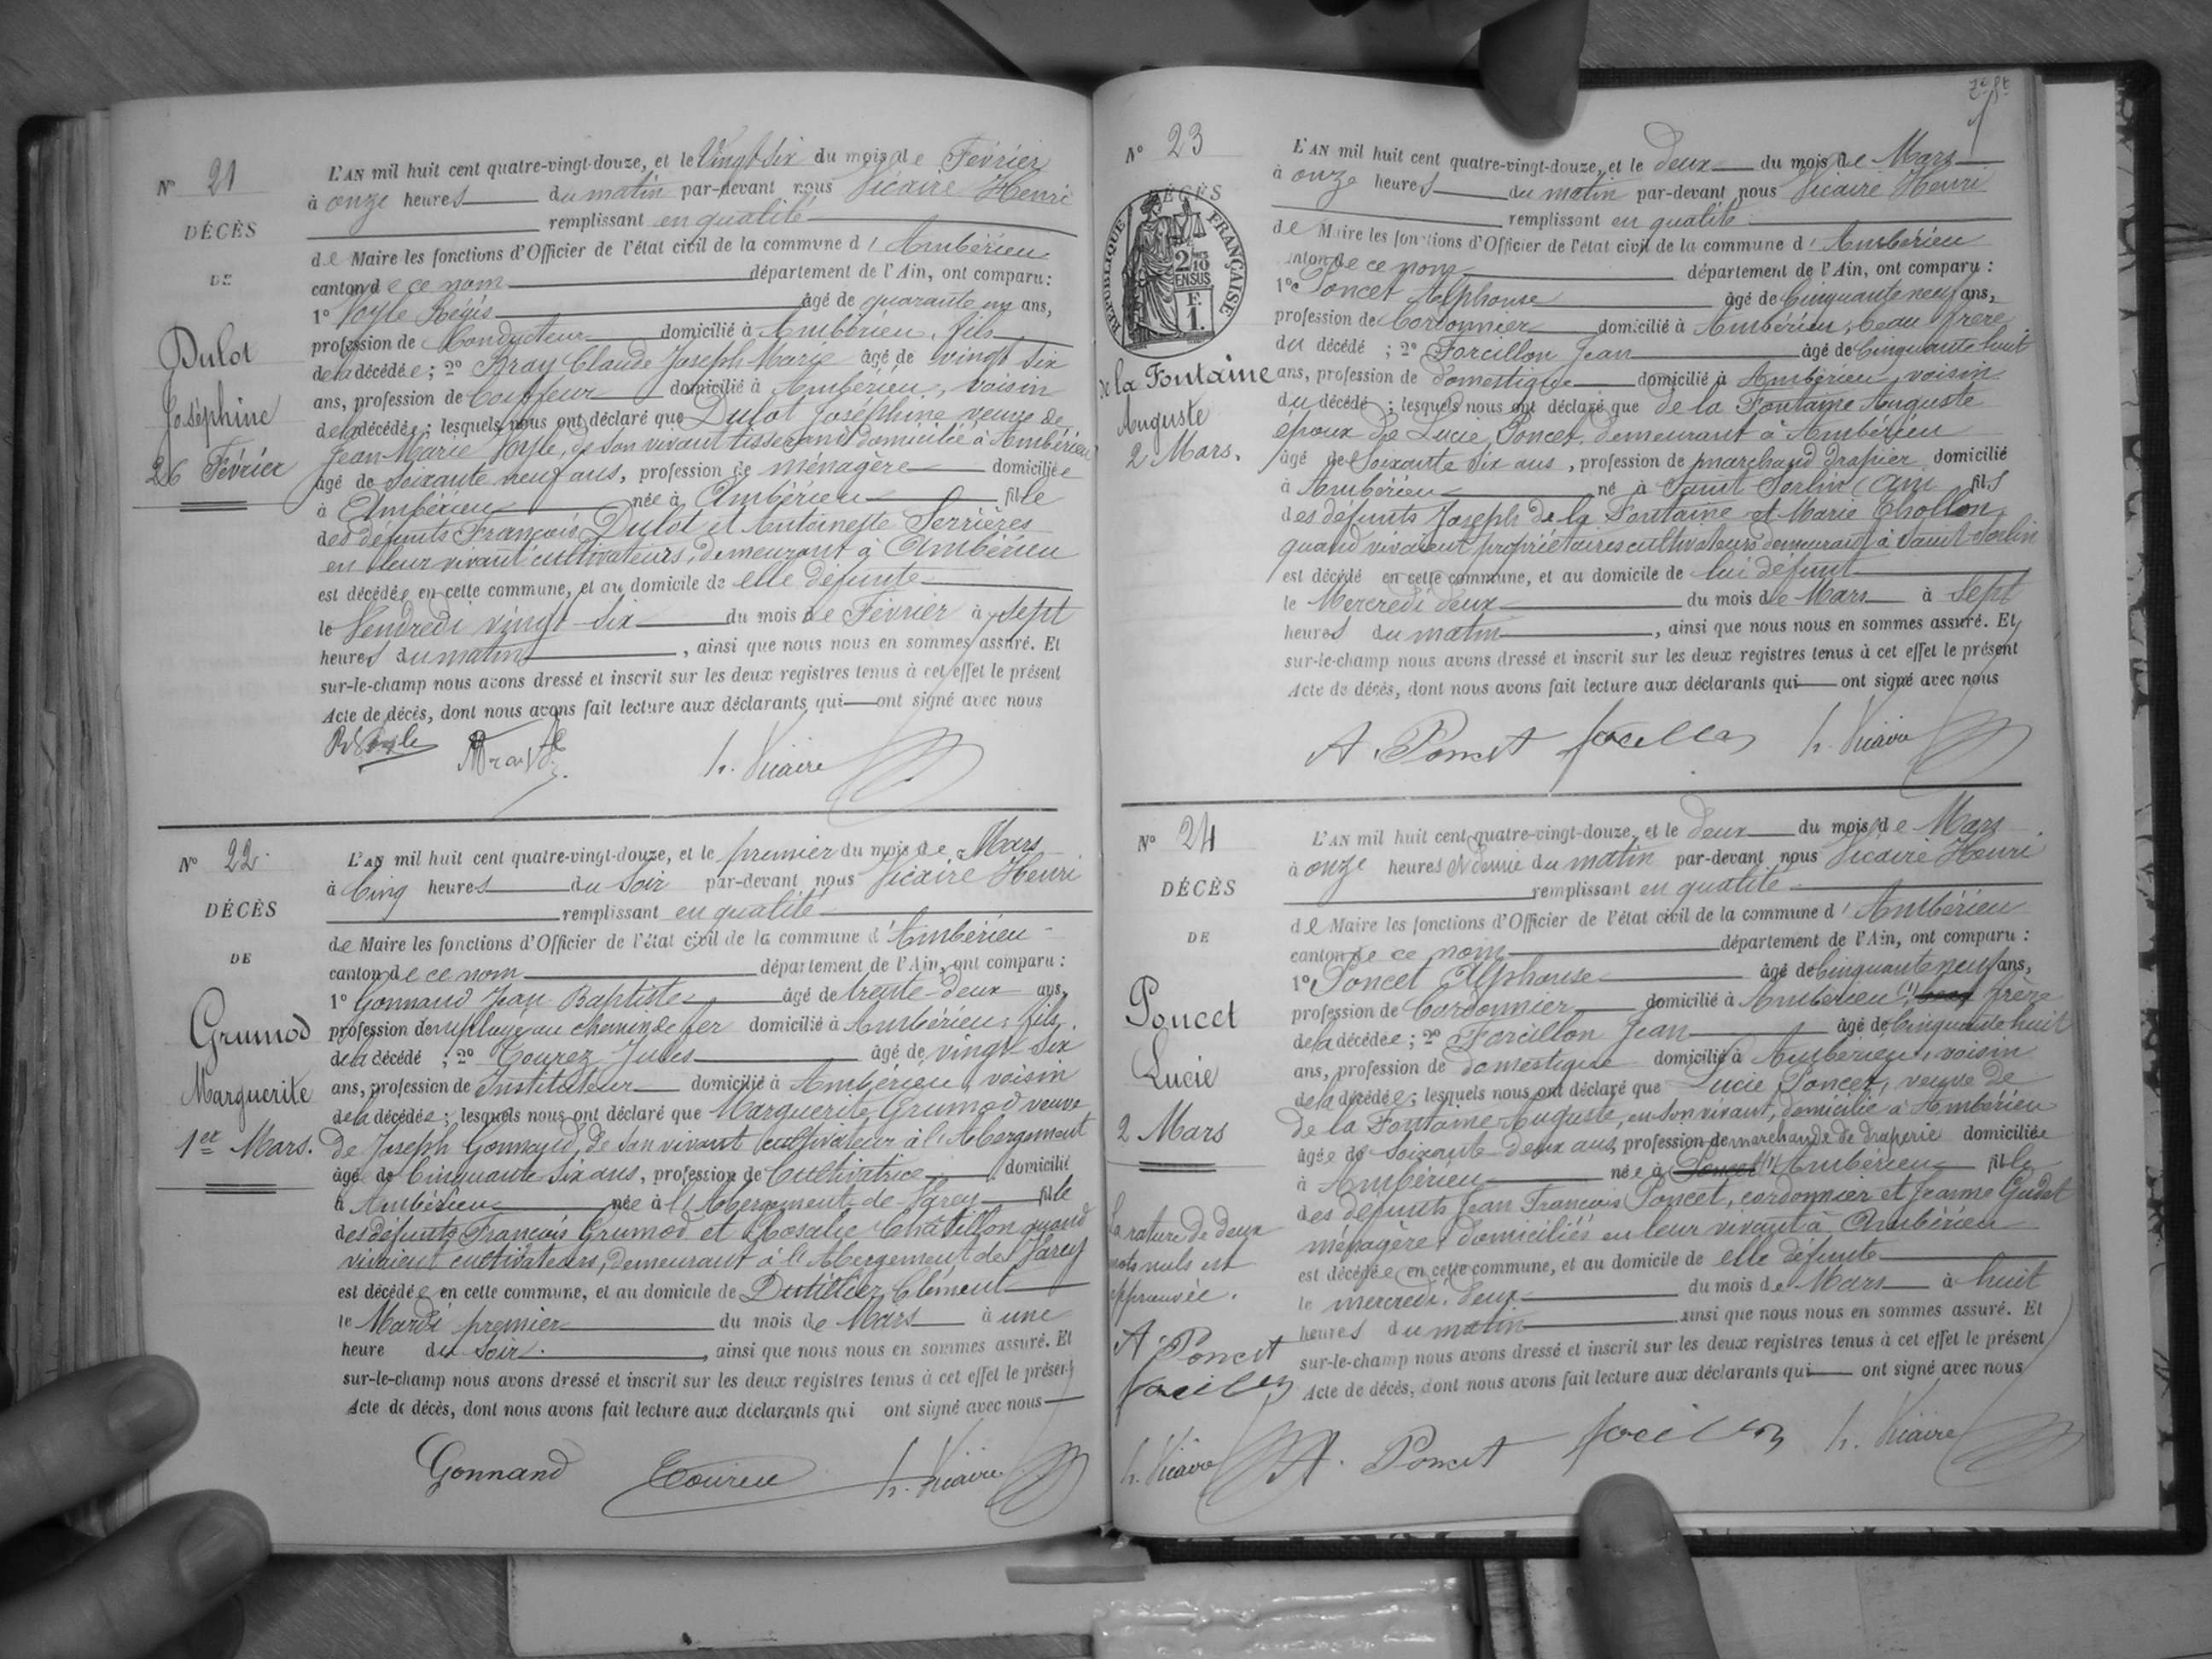 N° 21
DÉCÈS
DE
Dulot
Joséphine
26 Février
L'AN mil huit cent quatre-vingt-douze, et le Vingt six du mois de Février
à onze heures du matin par-devant nous Vicaire Henri
remplissant en qualité
de Maire les fonctions d'Officier de l'état civil de la commune d'Ambérieu
canton de ce nom département de l'Ain, ont comparu :
1° Voyle Régis âgé de quarante un ans,
profession de Conducteur domicilié à Ambérieu, fils
de la décédée ; 2° Bray Claude Joseph Marie âgé de vingt six
ans, profession de Coiffeur domicilié à Ambérieu, voisin
de la décédée ; lesquels nous ont déclaré que Dulot Joséphine veuve de
Jean-Marie Voyle, de son vivant tisserand domicilié à Ambérieu
âgé de soixante neuf ans, profession de ménagère domiciliée
à Ambérieu née à Ambérieu fille
des défunts François Dulot et Antoinette Serrières
en leur vivant cultivateurs, demeurant à Ambérieu
est décédée en cette commune, et au domicile de elle défunte
le Vendredi vingt six du mois de Février à sept
heures du matin, ainsi que nous nous en sommes assuré. Et
sur-le-champ nous avons dressé et inscrit sur les deux registres tenus à cet effet le présent
Acte de décès, dont nous avons fait lecture aux déclarants qui ont signé avec nous
h. Vicaire
N° 22
DÉCÈS
DE
Grumod
Marguerite
1er Mars.
L'AN mil huit cent quatre-vingt-douze, et le premier du mois de Mars
à Cinq heures du Soir par-devant nous Vicaire Henri
remplissant en qualité
de Maire les fonctions d'Officier de l'état civil de la commune d'Ambérieu
canton de ce nom département de l'Ain, ont comparu :
1° Gonnand Jean Baptiste âgé de trente-deux ans,
profession d'employé au chemin de fer domicilié à Ambérieu, fils
de la décédé ; 2° Tourez Jules âgé de vingt six
ans, profession de Instituteur domicilié à Ambérieu, voisin
de la décédée ; lesquels nous ont déclaré que Marguerite Grumod veuve
de Joseph Gonnand, de son vivant cultivateur à l'Abergement
âgé de Cinquante six ans, profession de Cultivatrice domicilié
à Ambérieu née à l'Abergement de Varey fille
des défunts François Grumod et Rosalie Châtillon quand
vivaient cultivateurs, demeurant à l'Abergement de Varey
est décédée en cette commune, et au domicile de Dutillier Clément
le Mardi premier du mois de Mars à une
heure du soir, ainsi que nous nous en sommes assuré. Et
sur-le-champ nous avons dressé et inscrit sur les deux registres tenus à cet effet le présent
Acte de décès, dont nous avons fait lecture aux déclarants qui ont signé avec nous
Gonnand h. Vicaire
N° 23
DÉCÈS
RÉPUBLIQUE FRANÇAISE
2/10 EN SUS
1 F.
de la Fontaine
Auguste
2 Mars.
L'AN mil huit cent quatre-vingt-douze, et le deux du mois de Mars
à onze heures du matin par-devant nous Vicaire Henri
remplissant en qualité
de Maire les fonctions d'Officier de l'état civil de la commune d'Ambérieu
canton de ce nom département de l'Ain, ont comparu :
1° Poncet Alphonse âgé de Cinquante neuf ans,
profession de Cordonnier domicilié à Ambérieu, beau frère
du décédé ; 2° Forcillon Jean âgé de Cinquante huit
ans, profession de domestique domicilié à Ambérieu voisin
du décédé ; lesquels nous ont déclaré que de la Fontaine Auguste
époux de Lucie Poncet, demeurant à Ambérieu
âgé de Soixante six ans, profession de marchand drapier domicilié
à Ambérieu né à Saint Sorlin (Ain fils
des défunts Joseph de la Fontaine et Marie Chollon
quand vivaient propriétaires cultivateurs demeurant à Saint-Sorlin
est décédé en cette commune, et au domicile de lui défunt
le Mercredi deux du mois de Mars à Sept
heures du matin, ainsi que nous nous en sommes assuré. Et
sur-le-champ nous avons dressé et inscrit sur les deux registres tenus à cet effet le présent
Acte de décès, dont nous avons fait lecture aux déclarants qui ont signé avec nous
A. Poncet h. Vicaire
N° 24
DÉCÈS
DE
Poncet
Lucie
2 Mars
La rature de deux
mots nuls est
approuvée.
A Poncet
h. Vicaire
L'AN mil huit cent quatre-vingt-douze, et le deux du mois de Mars
à onze heures et demie du matin par-devant nous Vicaire Henri
remplissant en qualité
de Maire les fonctions d'Officier de l'état civil de la commune d'Ambérieu
canton de ce nom département de l'Ain, ont comparu :
1° Poncet Alphonse âgé de Cinquante neuf ans,
profession de Cordonnier domicilié à Ambérieu (1) beau frère
de la décédée ; 2° Forcillon Jean âgé de Cinquante huit
ans, profession de domestique domicilié à Ambérieu, voisin
de la décédée ; lesquels nous ont déclaré que Lucie Poncet, veuve de
de la Fontaine Auguste, en son vivant, domicilié à Ambérieu
âgée de soixante-deux ans, profession de marchande de draperie domiciliée
à Ambérieu née à Poncet (1) Ambérieu fille
des défunts Jean François Poncet, cordonnier et Jeanne Gudet
ménagère, domiciliés en leur vivant à Ambérieu
est décédée en cette commune, et au domicile de elle défunte
le mercredi deux du mois de Mars à huit
heures du matin ainsi que nous nous en sommes assuré. Et
sur-le-champ nous avons dressé et inscrit sur les deux registres tenus à cet effet le présent
Acte de décès, dont nous avons fait lecture aux déclarants qui ont signé avec nous
A. Poncet h. Vicaire